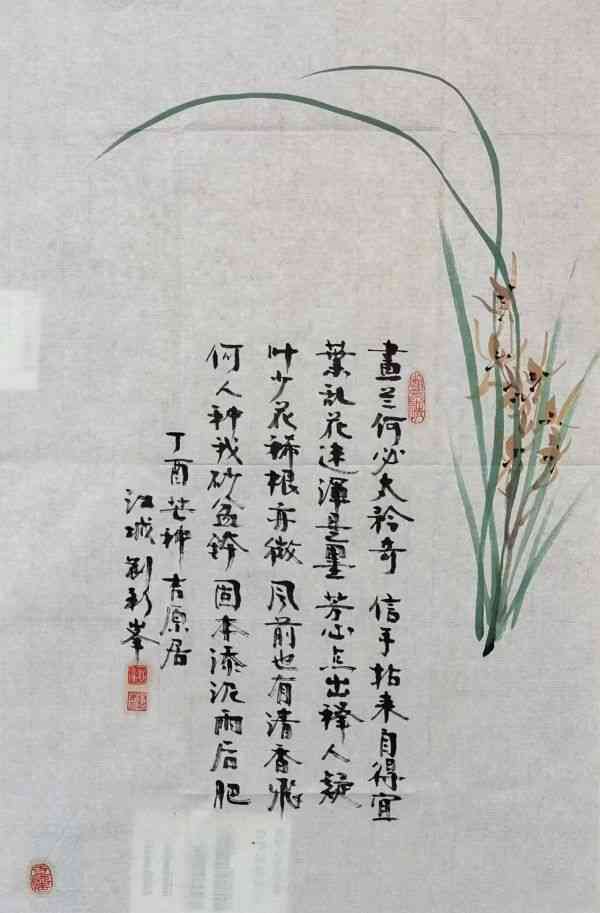 畫兰何必太矜奇 信手拈来自得宜
葉乱花迷渾是墨 芳心点出释人疑
叶少花稀根亦微 风前也有清香飛
何人种我砂盆钵 固本添泥雨后肥
丁酉芒种 吉原居
江城 刘新峯